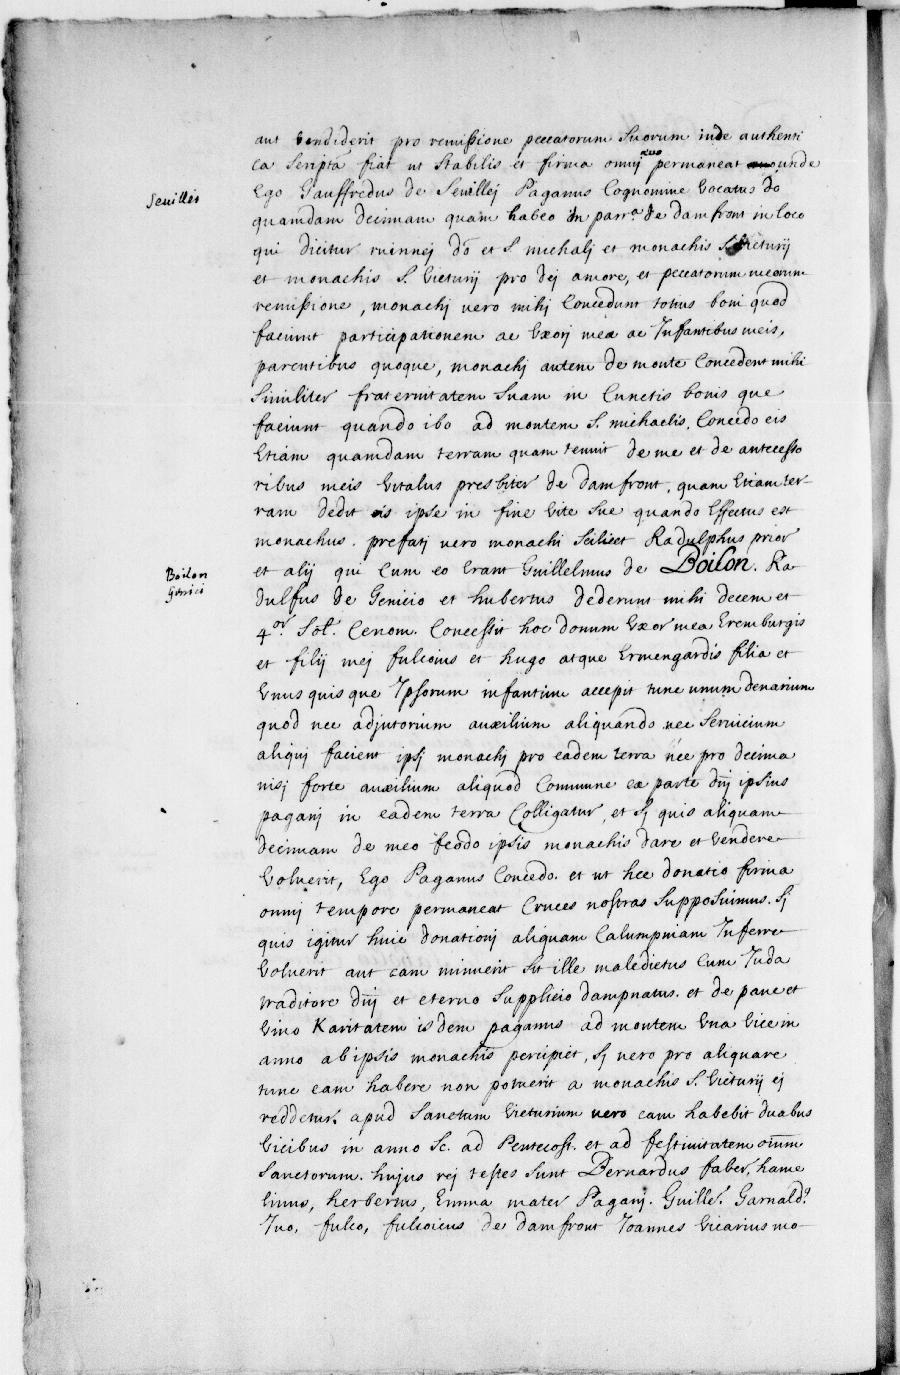 aut Vendiderit pro remissione peccatorum Suorum inde authenti
ca Scripta fiat ut Stabilis et firma omnj ævo permaneat unde
Ego Gauffredus de Seuillej Paganus Cognomine Vocatus do
quamdam decimam quam habeo in parr.a de damfront in loco
Seuilles
qui dicitur ruionnej do et S. michaelj et monachis S. Victurij
et monachis S. Victurij pro dej amore, et peccatorum meorum
remissione, monachj uero mihj Concedunt totius boni quod
faciunt participationem ac Vxorj meæ ac Jnfantibus meis,
parentibus quoque, monachj autem de monte Concedent mihi
Similiter fraternitatem Suam in Cunctis bonis que
faciunt quando ibo ad montem S. michaelis. Concedo eis
Etiam quamdam terram quam tenuit de me et de antecesso
ribus meis Vitalus presbiter de damfront, quam Etiam ter-
ram dedit eis ipse in fine Vite Sue quando Effectus est
monachus. prefatj uero monachi Scilicet Radulphus prior
et alij qui Cum eo Erant Guillelmus de Boilon. Ra
Boilon
Genici
dulfus de Genicio et hubertus dederunt mihi decem et
4or. Sol. Cenom. Concessit hoc donum Vxor mea Eremburgis
et filij mej fulcoius et hugo atque Ermengardis filia et
Vnus quis que Jpsorum infantium accepit tunc unum denarium
quod nec adjutorium auxilium aliquando nec Seruicium
aliquj facient ipsj monachj pro eadem terra nec pro decima
nisj forte auxilium aliquod Commune ex parte dnj ipsius
paganj in eadem terra Colligatur, et Sj quis aliquam
decimam de meo feodo ipsis monachis dare et Vendere
Voluerit, Ego Paganus Concedo. et ut hec donatio firma
omnj tempore permaneat Cruces nostras Supposuimus. Sj
quis igitur huic donationj aliquam Calumpniam Jnferre
Voluerit aut eam minuerit Sit ille maledictus Cum Juda
traditore dnj et eterno Supplicio dampnatus. et de pane et
Vino Karitatem isdem paganus ad montem Vna Vice in
anno ab ipsis monachis percipiet, Sj uero pro aliqua re
tunc eam habere non poterit a monachis S. Victurij ej
reddetur. apud Sanctum Victurium uero eam habebit duabus
Vicibus in anno Sc. ad Pentecost. et ad festiuitatem omnm
Sanctorum. hujus rej testes Sunt Bernardus faber, hame
linus, herbertus, Emma mater Paganj. Guille. Garnald9
Juo, fulco, fulcoicus de damfront Joannes Vicarius mo